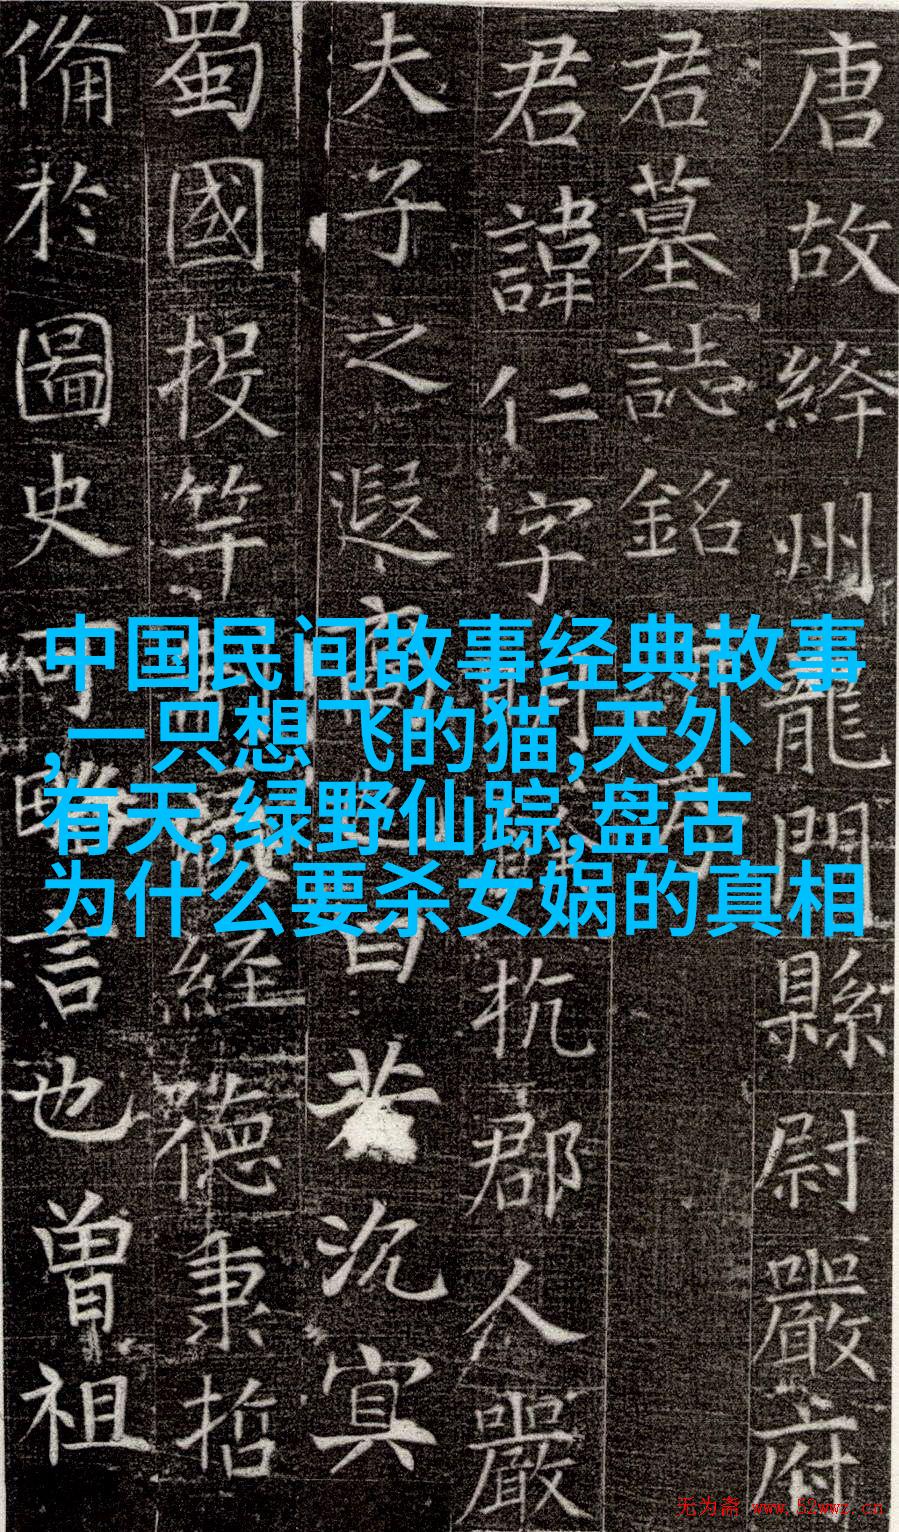 唐故絳州龍門縣尉嚴府
君墓誌銘
君諱仁字杭郡人嚴
夫子之遐裔若沉冥
蜀國投竿經德秉哲
備於圖史可略言也曾祖
中国民间故事经典故事
,一只想飞的猫,天外
有天,绿野仙踪,盘古
为什么要杀女娲的真相
无为斋 www.52wwz.cn